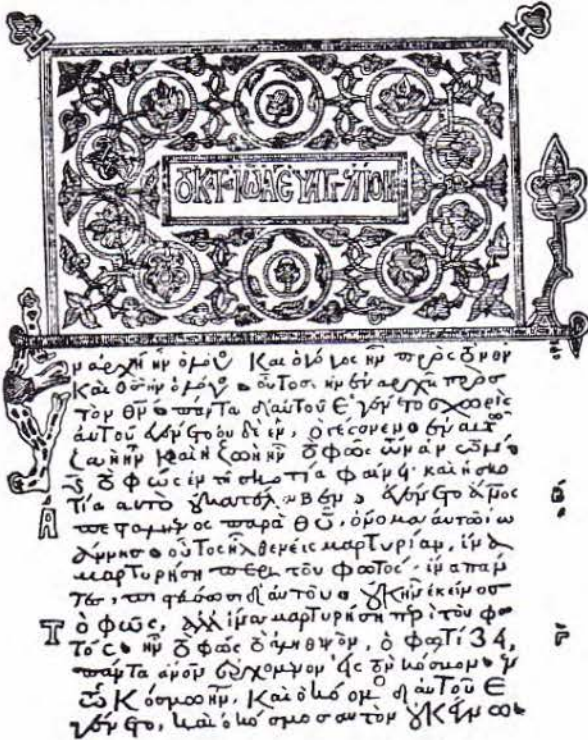 ΤΟ ΚΑΤ ΙΩΑ ΕΥΑΓΓΕΛΙΟΝ
Ἐν ἀρχῇ ἦν ὁ λόγος καὶ ὁ λόγος ἦν πρὸς τὸν θ̅ν̅
καὶ θ̅ς̅ ἦν ὁ λόγος· οὗτος ἦν ἐν ἀρχῇ πρὸς
τὸν θ̅ν̅· πάντα δι αὐτοῦ ἐγένετο χωρὶς
αὐτοῦ ἐγένετο οὐδὲ ἕν, ὃ γέγονεν ἐν αὐτῶ
ζωὴ ἦν καὶ ἡ ζωὴ ἦν τὸ φῶς τῶν ἀν̅ω̅ν̅
τὸ φῶς ἐν τῆ σκοτία φαίνει· καὶ ἡ σκο
τία αὐτὸ οὐ κατέλαβεν· ἐγένετο ἄν̅ο̅ς̅
ἀπεσταλμένος παρὰ θ̅υ̅, ὄνομα αὐτῶ ἰω
άννησ· οὗτος ἦλθεν εἰς μαρτυρίαν, ἵνα
μαρτυρήση περὶ τοῦ φωτός· ἵνα πάν
τες, πιστεύσωσι δι αὐτοῦ· οὐκ ἦν ἐκεῖνος
τὸ φῶς, ἀλλ ἵνα μαρτυρήση περὶ τοῦ φω
τός· ἦν τὸ φῶς τὸ ἀληθινὸν, ὃ φωτίζει,
πάντα ἄν̅ο̅ν̅ ἐρχόμενον εἰς τὸν κόσμον· ἐν
τῶ κόσμω ἦν, καὶ ὁ κόσμος δι αὐτοῦ ἐ
γένετο, καὶ ὁ κόσμος αὐτὸν οὐκ ἔγνω·